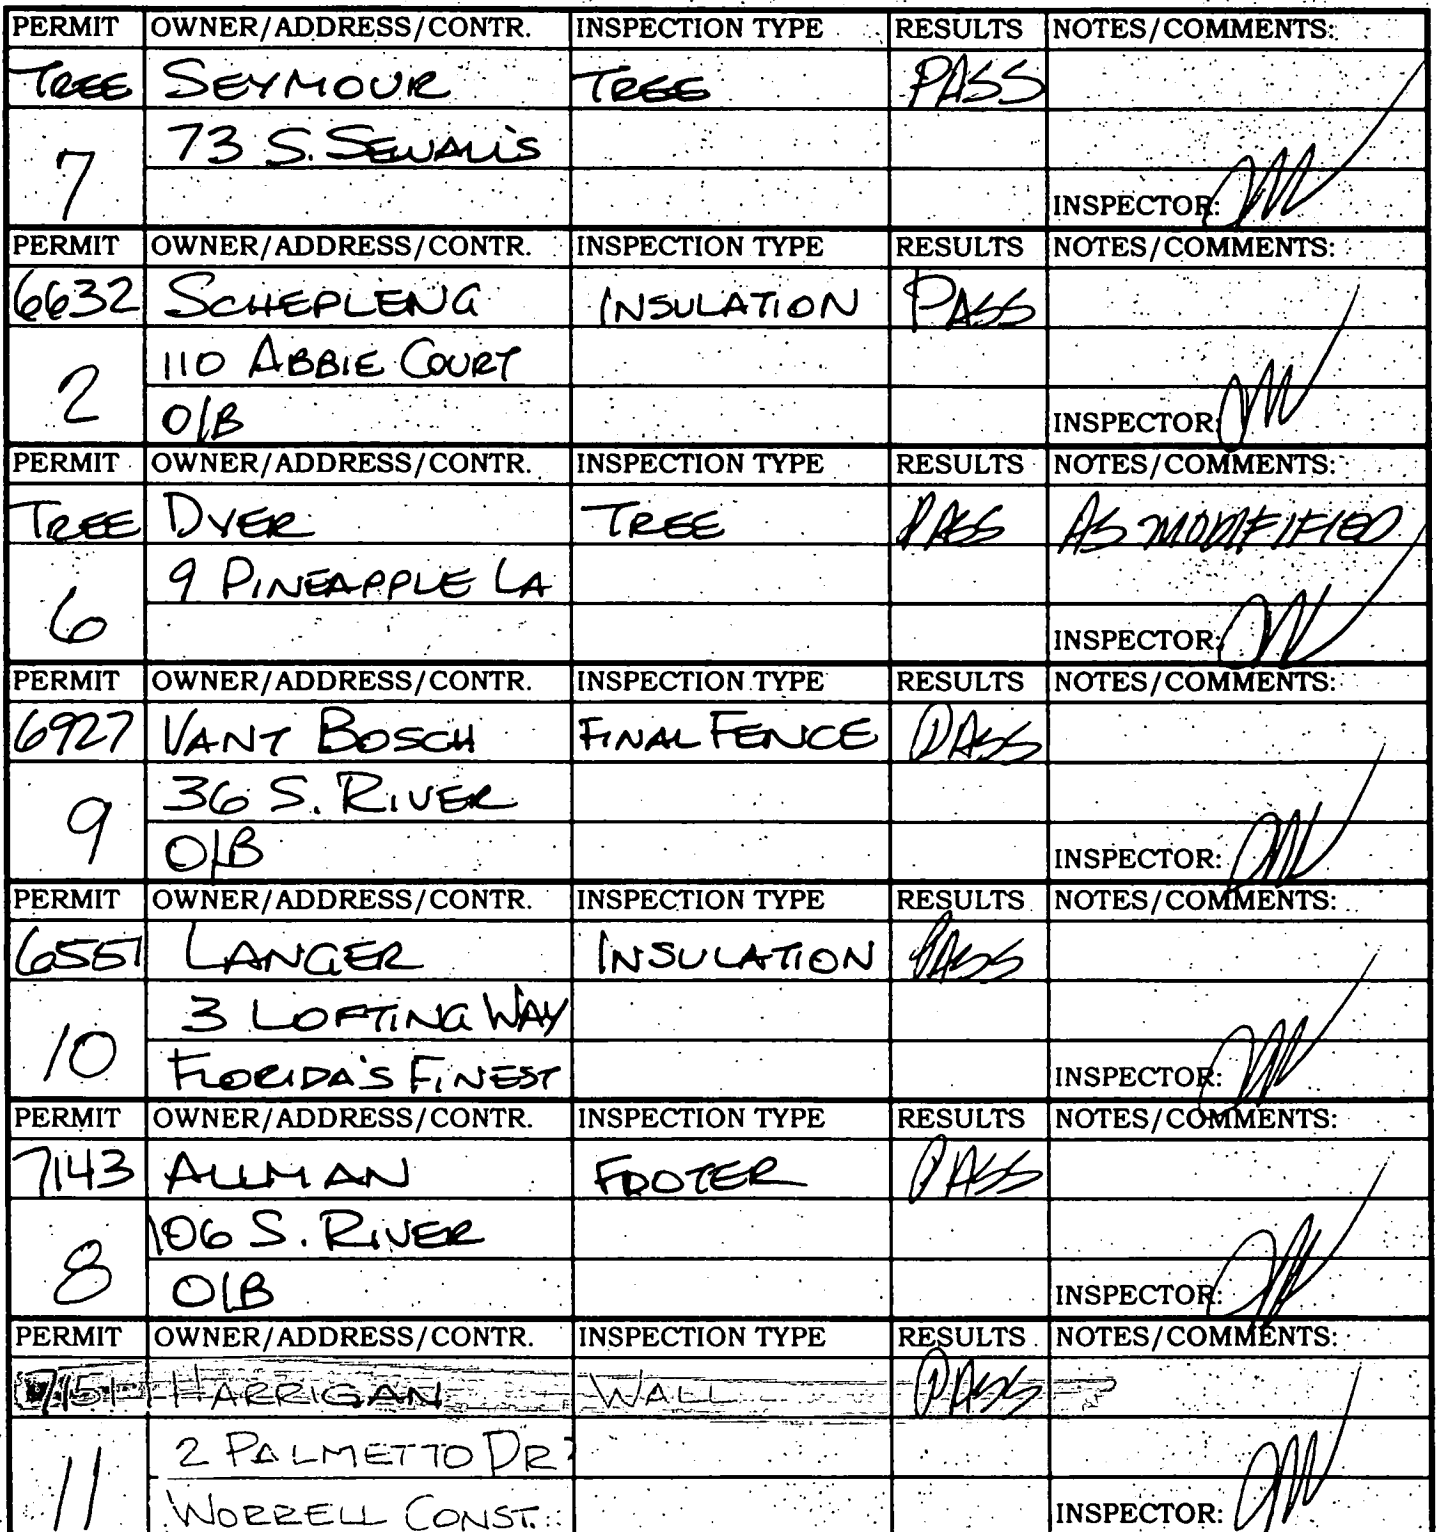 PERMIT OWNER/ADDRESS/CONTR. INSPECTION TYPE RESULTS NOTES/COMMENTS:
TREE SEYMOUR TREE PASS
7 73 S. SEWALL'S
INSPECTOR:
PERMIT OWNER/ADDRESS/CONTR. INSPECTION TYPE RESULTS NOTES/COMMENTS:
6632 SCHEPLENG INSULATION PASS
2 110 ABBIE COURT
O/B INSPECTOR:
PERMIT OWNER/ADDRESS/CONTR. INSPECTION TYPE RESULTS NOTES/COMMENTS:
TREE DYER TREE PASS AS MODIFIED
6 9 PINEAPPLE LA
INSPECTOR:
PERMIT OWNER/ADDRESS/CONTR. INSPECTION TYPE RESULTS NOTES/COMMENTS:
6927 VANT BOSCH FINAL FENCE PASS
9 36 S. RIVER
O/B INSPECTOR:
PERMIT OWNER/ADDRESS/CONTR. INSPECTION TYPE RESULTS NOTES/COMMENTS:
6551 LANGER INSULATION PASS
10 3 LOFTING WAY
FLORIDA'S FINEST INSPECTOR:
PERMIT OWNER/ADDRESS/CONTR. INSPECTION TYPE RESULTS NOTES/COMMENTS:
7143 ALLMAN FOOTER PASS
8 106 S. RIVER
O/B INSPECTOR:
PERMIT OWNER/ADDRESS/CONTR. INSPECTION TYPE RESULTS NOTES/COMMENTS:
7151 HARRIGAN WALL PASS
11 2 PALMETTO DR
WORRELL CONST. INSPECTOR: